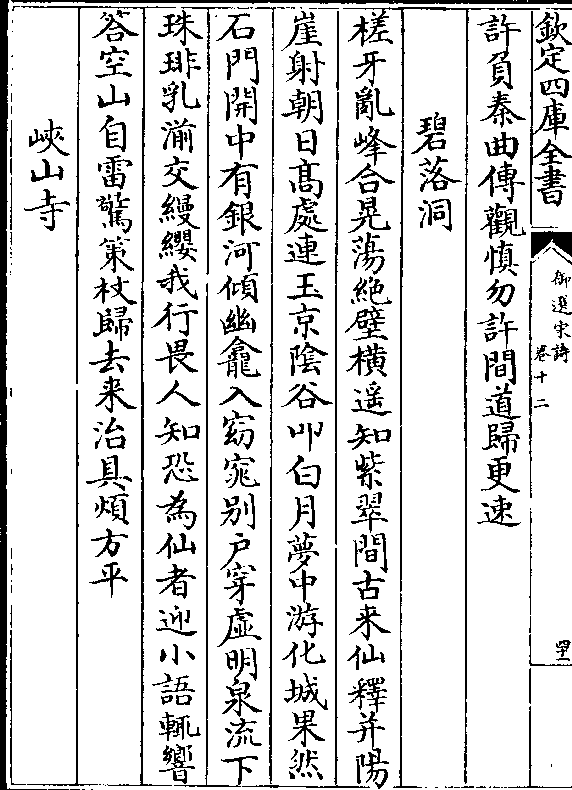 欽定四庫全書
御選宋詩
卷十二
罕二
許負秦曲傳觀慎勿許間道歸更速
碧落洞
槎牙亂峰合晃蕩絶壁橫遥知紫翠間古来仙釋并陽
崖射朝日髙處連玉京隂谷叩白月夢中游化城果然
石門開中有銀河傾幽龕入窈窕别户穿虛明泉流下
珠琲乳溜交縵纓我行畏人知恐為仙者迎小語輒響
答空山自雷驚策杖歸去来治具煩方平
峽山寺